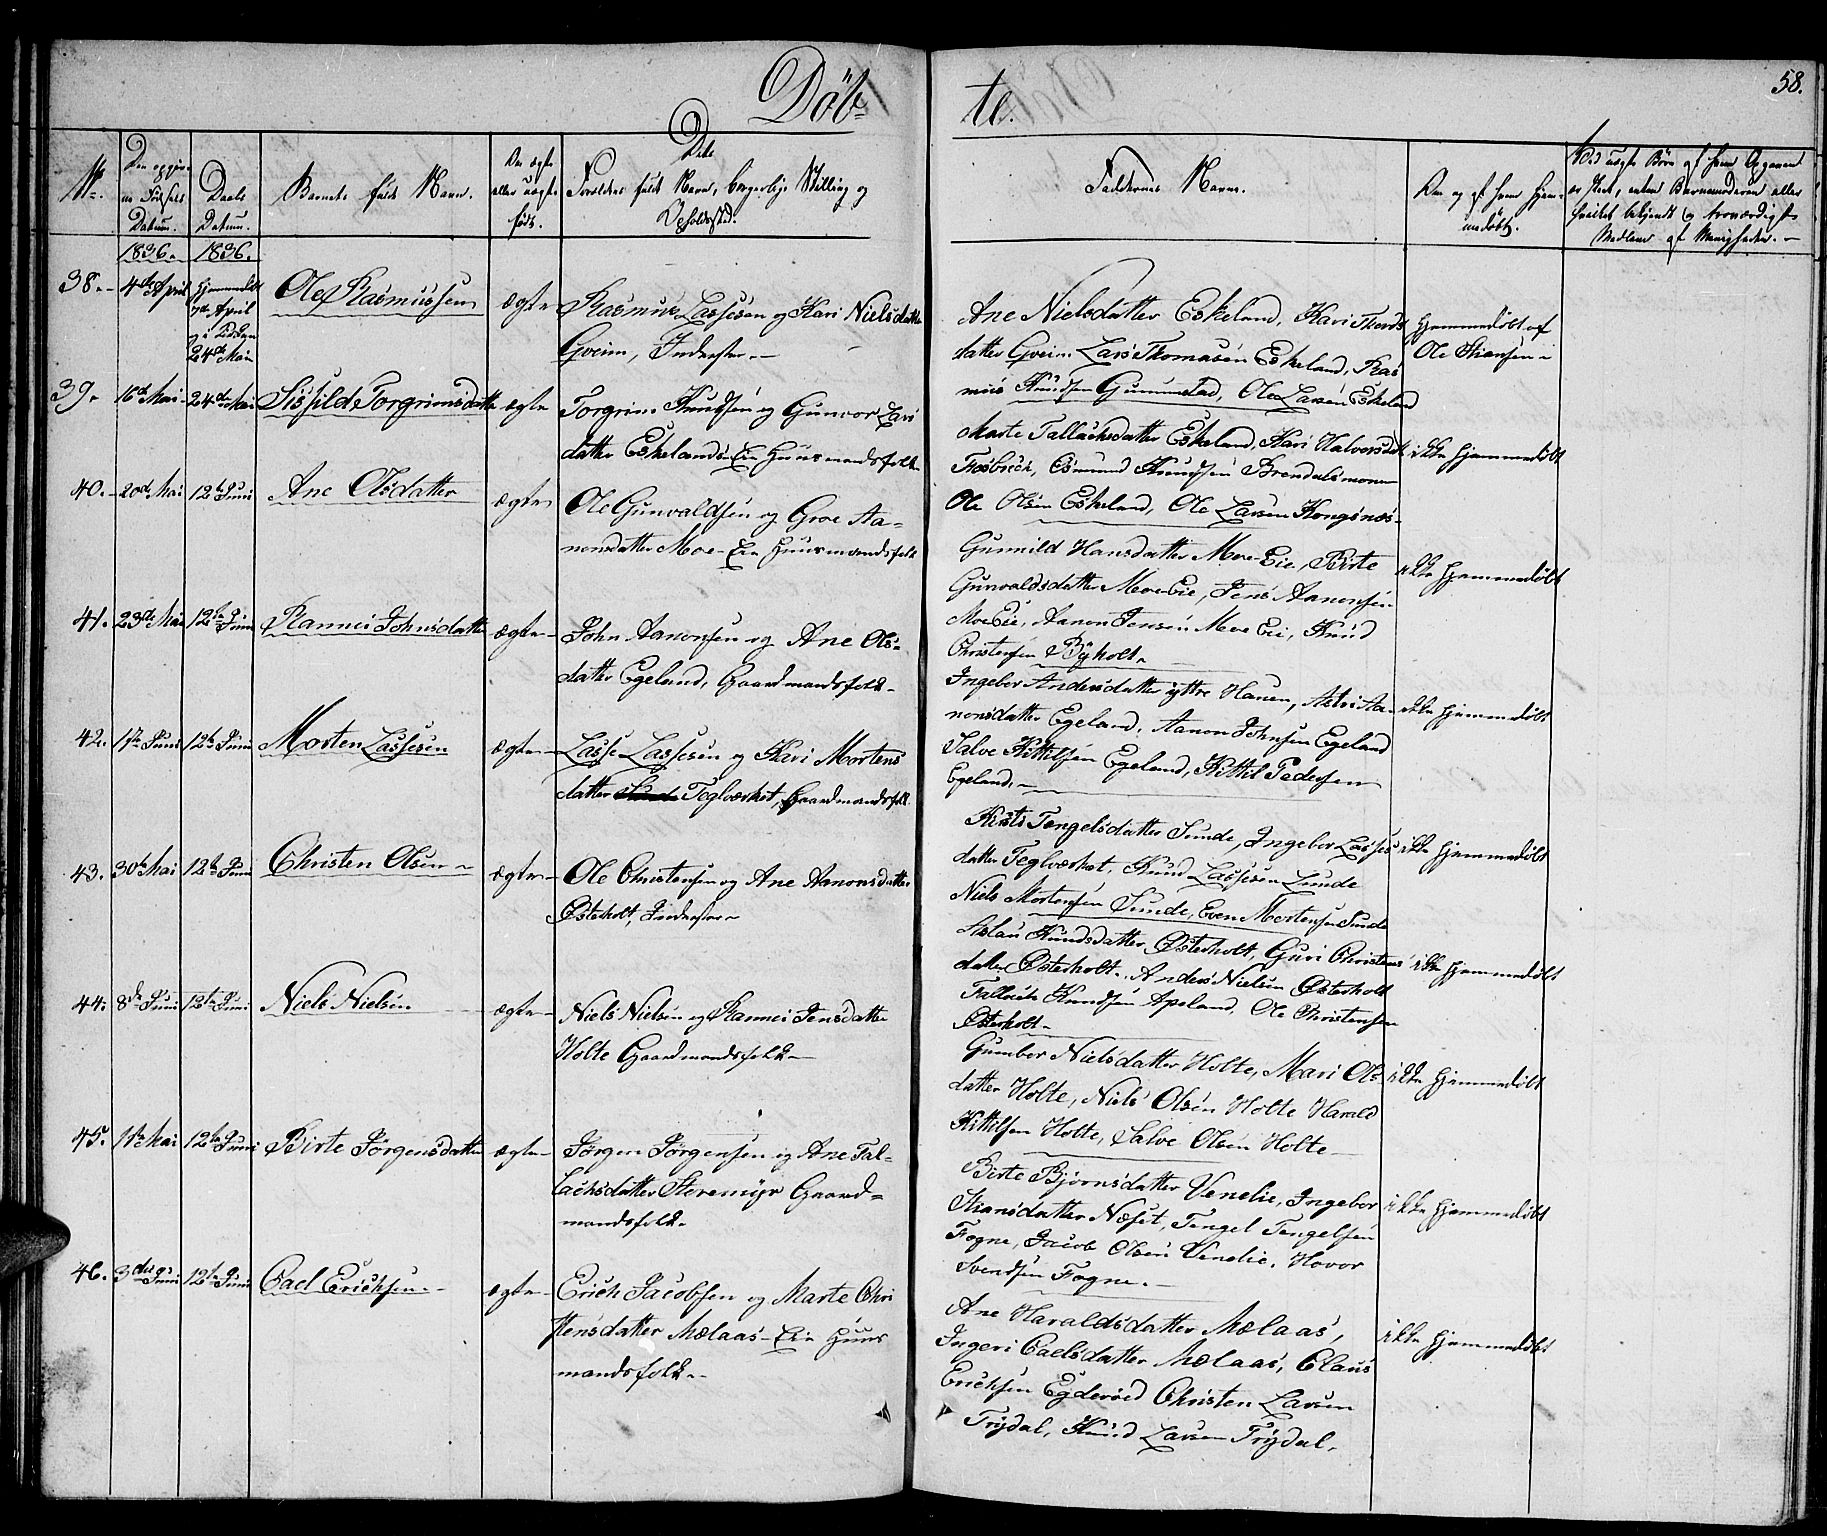 Döbte.
58.
No.
Den opgivne Födsels Datum.
Daabs Datum.
Barnets fulde Navn.
Om ægte eller uægte födt.
Dets Forældres fulde Navn, borgerlige Stilling og Opholdssted.
Faddernes Navne.
Om og af hvem hjemmedöbt.
Ved uægte Börn af hvem Opgaven er skeet, enten Barnemoderen eller hvilket bekjendt og troværdigt Medlem af Menigheden.
1836. 1836.
38. 4de April Hjemmedöbt 7de April og i Kirken 24de Mai Ole Rasmussen ægte
Rasmus Lassesen og Kari Nielsdatter
Gveim, Inderster
Ane Nielsdatter Eskeland, Kari Thords
datter Gveim. Lars Thomasen Eskeland, Ras
mus Knudsen Gummestad, Ole Larsen Eskeland
Hjemmedöbt af
Ole Stiansen
39. 16de Mai 24de Mai Sisfild Torgrimsdatter ægte
Torgrim Knudsen og Gunvor Lars
datter Eskelands-Eie Huusmandsfolk
Marte Tallachsdatter Eskeland, Kari Halvorsdatter
Fosbæck, Osmund Knudsen Brendalsmoen
Ole Olsen Eskeland, Ole Larsen Kongsnæs
ikke Hjemmedöbt
40. 20de Mai 12te Juni Ane Olsdatter ægte
Ole Gunvaldsen og Groe Aa-
nonsdatter Moe-Eie Huusmandsfolk
Gunnild Hansdatter Moe-Eie, Birte
Gunvaldsdatter Moe-Eie, Jens Aanonsen
Moe Eie, Aanon Jensen Moe Eie, Knud
Christensen Byholt
ikke Hjemmedöbt
41. 23de Mai 12te Juni Rannei Johnsdatter ægte
John Aanonsen og Ane Ols-
datter Egeland, Gaardmandsfolk
Ingebor Andersdatter yttre Hauen, Astri Aa-
nonsdatter Egeland, Aanon Johnsen Egeland
Salve Kittilsen Egeland, Kittil Pedersen
Egeland.
ikke Hjemmedöbt
42. 1ste Juni 12te Juni Morten Lassesen ægte
Lasse Lassesen og Kari Mortens
datter Teglværket, Gaardmandsfolk
Kirsti Tengelsdatter Sunde, Ingebor Lasses
datter Teglværket, Knud Lassesen Lunde
Niels Mortensen Sunde, Even Mortensen Sunde
ikke Hjemmedöbt
43. 30te Mai 12te Juni Christen Olsen ægte
Ole Christensen og Ane Aanonsdatter
Østerholt, Inderster
Aslau Knudsdatter Østerholt, Guri Christens
datter Østerholt, Anders Nielsen Østerholt
Tallach Knudsen Apeland, Ole Christensen
Østerholt
ikke Hjemmedöbt
44. 8de Juni 12te Juni Niels Nielsen ægte
Niels Nielsen og Rannei Jensdatter
Holte Gaardmandsfolk
Gumber Nielsdatter Holte, Mari Ols
datter Holte, Niels Olsen Holte Harald
Kittilsen Holte, Salve Olsen Holte
ikke Hjemmedöbt
45. 11te Mai 12te Juni Birte Jörgensdatter ægte
Jörgen Jörgensen og Ane Tal-
lachsdatter Storemyr Gaard-
mandsfolk
Birte Bjornsdatter Venelie, Ingebor
Stiansdatter Næset, Tengel Tengelsen
Fogne, Jacob Olsen Venelie, Hovor
Svendsen Fogne.
ikke Hjemmedöbt
46. 3die Juni 12te Juni Cael Erichsen ægte
Erich Jacobsen og Marte Chri
stensdatter Melaas-Eie Huus
mandsfolk
Ane Haraldsdatter Melaas,
Ingeri Caelsdatter Melaas, Claus
Erichsen Egderöd Christen Larsen
Trydal, Knud Larsen Trydal,
ikke Hjemmedöbt